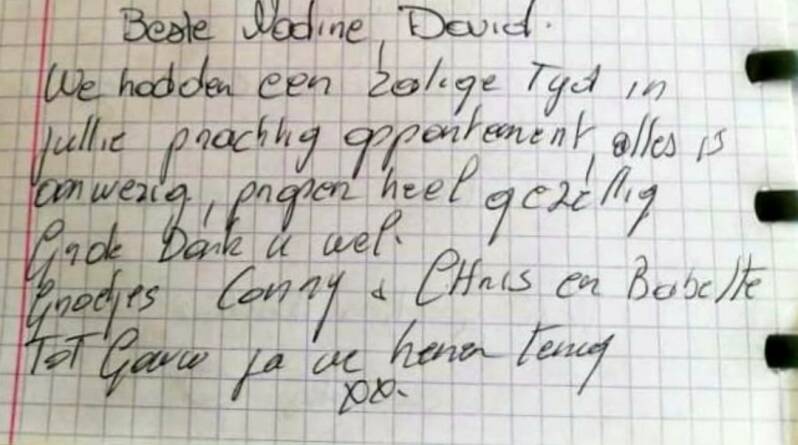 Beste Nadine, David.
We hadden een zalige Tyd in
jullie prachtig appartement, alles is
aanwezig, proper heel gezellig
Dank u wel.
Groetjes Conny & CHris en Babette
ToT Gauw ja we keren terug
xx.